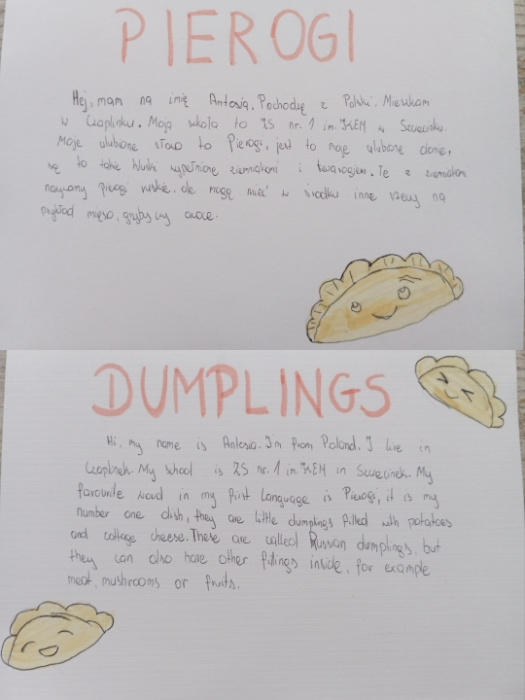 PIEROGI
Hej, mam na imię Antosia. Pochodzę z Polski. Mieszkam
w Czaplinku. Moja szkoła to ZS nr. 1 im. KEN w Szczecinku.
Moje ulubione słowo to Pierogi, jest to moje ulubione danie,
są to takie kluski wypełnione ziemniakami i twarogiem. Te z ziemniakami
nazywamy pierogi ruskie, ale mogą mieć w środku inne rzeczy na
przykład mięso, grzyby czy owoce.
DUMPLINGS
Hi, my name is Antosia. I'm from Poland. I live in
Czaplinek. My school is ZS nr. 1 im. KEN in Szczecinek. My
favourite word in my first language is Pierogi, it is my
number one dish, they are little dumplings filled with potatoes
and cottage cheese. These are called Russian dumplings, but
they can also have other fillings inside, for example
meat, mushrooms or fruits.